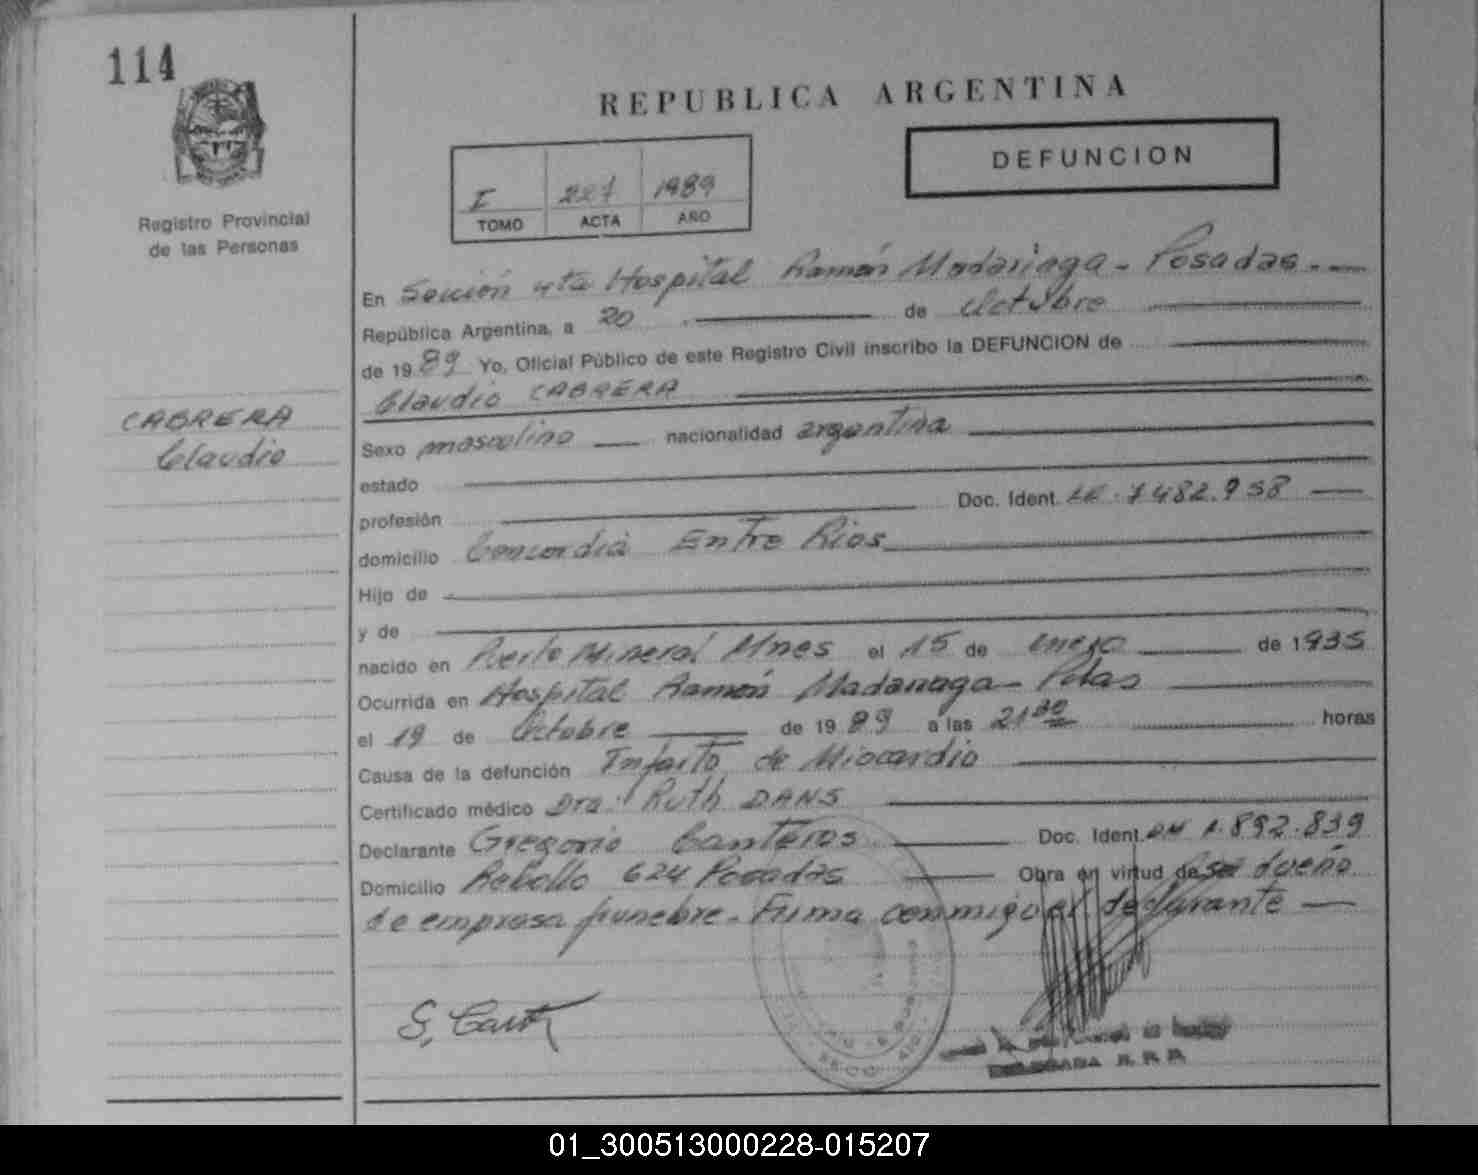 114
REPUBLICA ARGENTINA
DEFUNCION
I 227 1989
TOMO ACTA AÑO
Registro Provincial
de las Personas
En Sección 4ta Hospital Ramón Madariaga - Posadas.
República Argentina, a 20 de Octubre
de 1989 Yo, Oficial Público de este Registro Civil inscribo la DEFUNCION de
Claudio CABRERA
CABRERA
Claudio
Sexo masculino nacionalidad argentina
estado
profesión Doc. Ident. LE. 7482.958
domicilio Concordia Entre Rios
Hijo de
y de
nacido en Puerto Mineral Mnes el 15 de enero de 1935
Ocurrida en Hospital Ramón Madariaga - Pdas
el 19 de Octubre de 1989 a las 21 30 horas
Causa de la defunción Infarto de Miocardio
Certificado médico Dra. Ruth DANS
Declarante Gregorio Canteros Doc. Ident. 1.892.839
Domicilio Rebollo 624 Posadas Obra en virtud de Ser dueño
de empresa funebre. Firma conmigo el declarante
G. Cant
DELEGADA R. P. P.
01_300513000228-015207